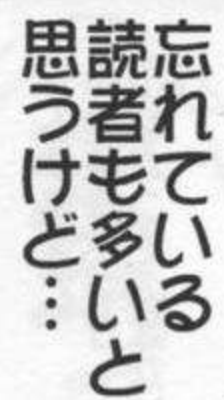 忘れている
読者も多いと
思うけど…